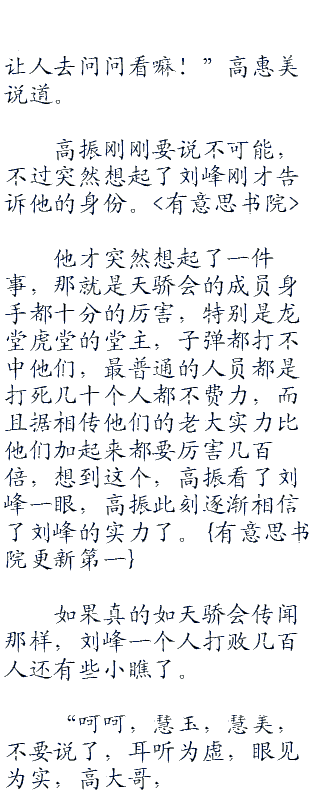 让人去问问看嘛！”高惠美
说道。
高振刚刚要说不可能，
不过突然想起了刘峰刚才告
诉他的身份。<有意思书院>
他才突然想起了一件
事，那就是天骄会的成员身
手都十分的厉害，特别是龙
堂虎堂的堂主，子弹都打不
中他们，最普通的人员都是
打死几十个人都不费力，而
且据相传他们的老大实力比
他们加起来都要厉害几百
倍，想到这个，高振看了刘
峰一眼，高振此刻逐渐相信
了刘峰的实力了。{有意思书
院更新第一}
如果真的如天骄会传闻
那样，刘峰一个人打败几百
人还有些小瞧了。
“呵呵，慧玉，慧美，
不要说了，耳听为虚，眼见
为实，高大哥，